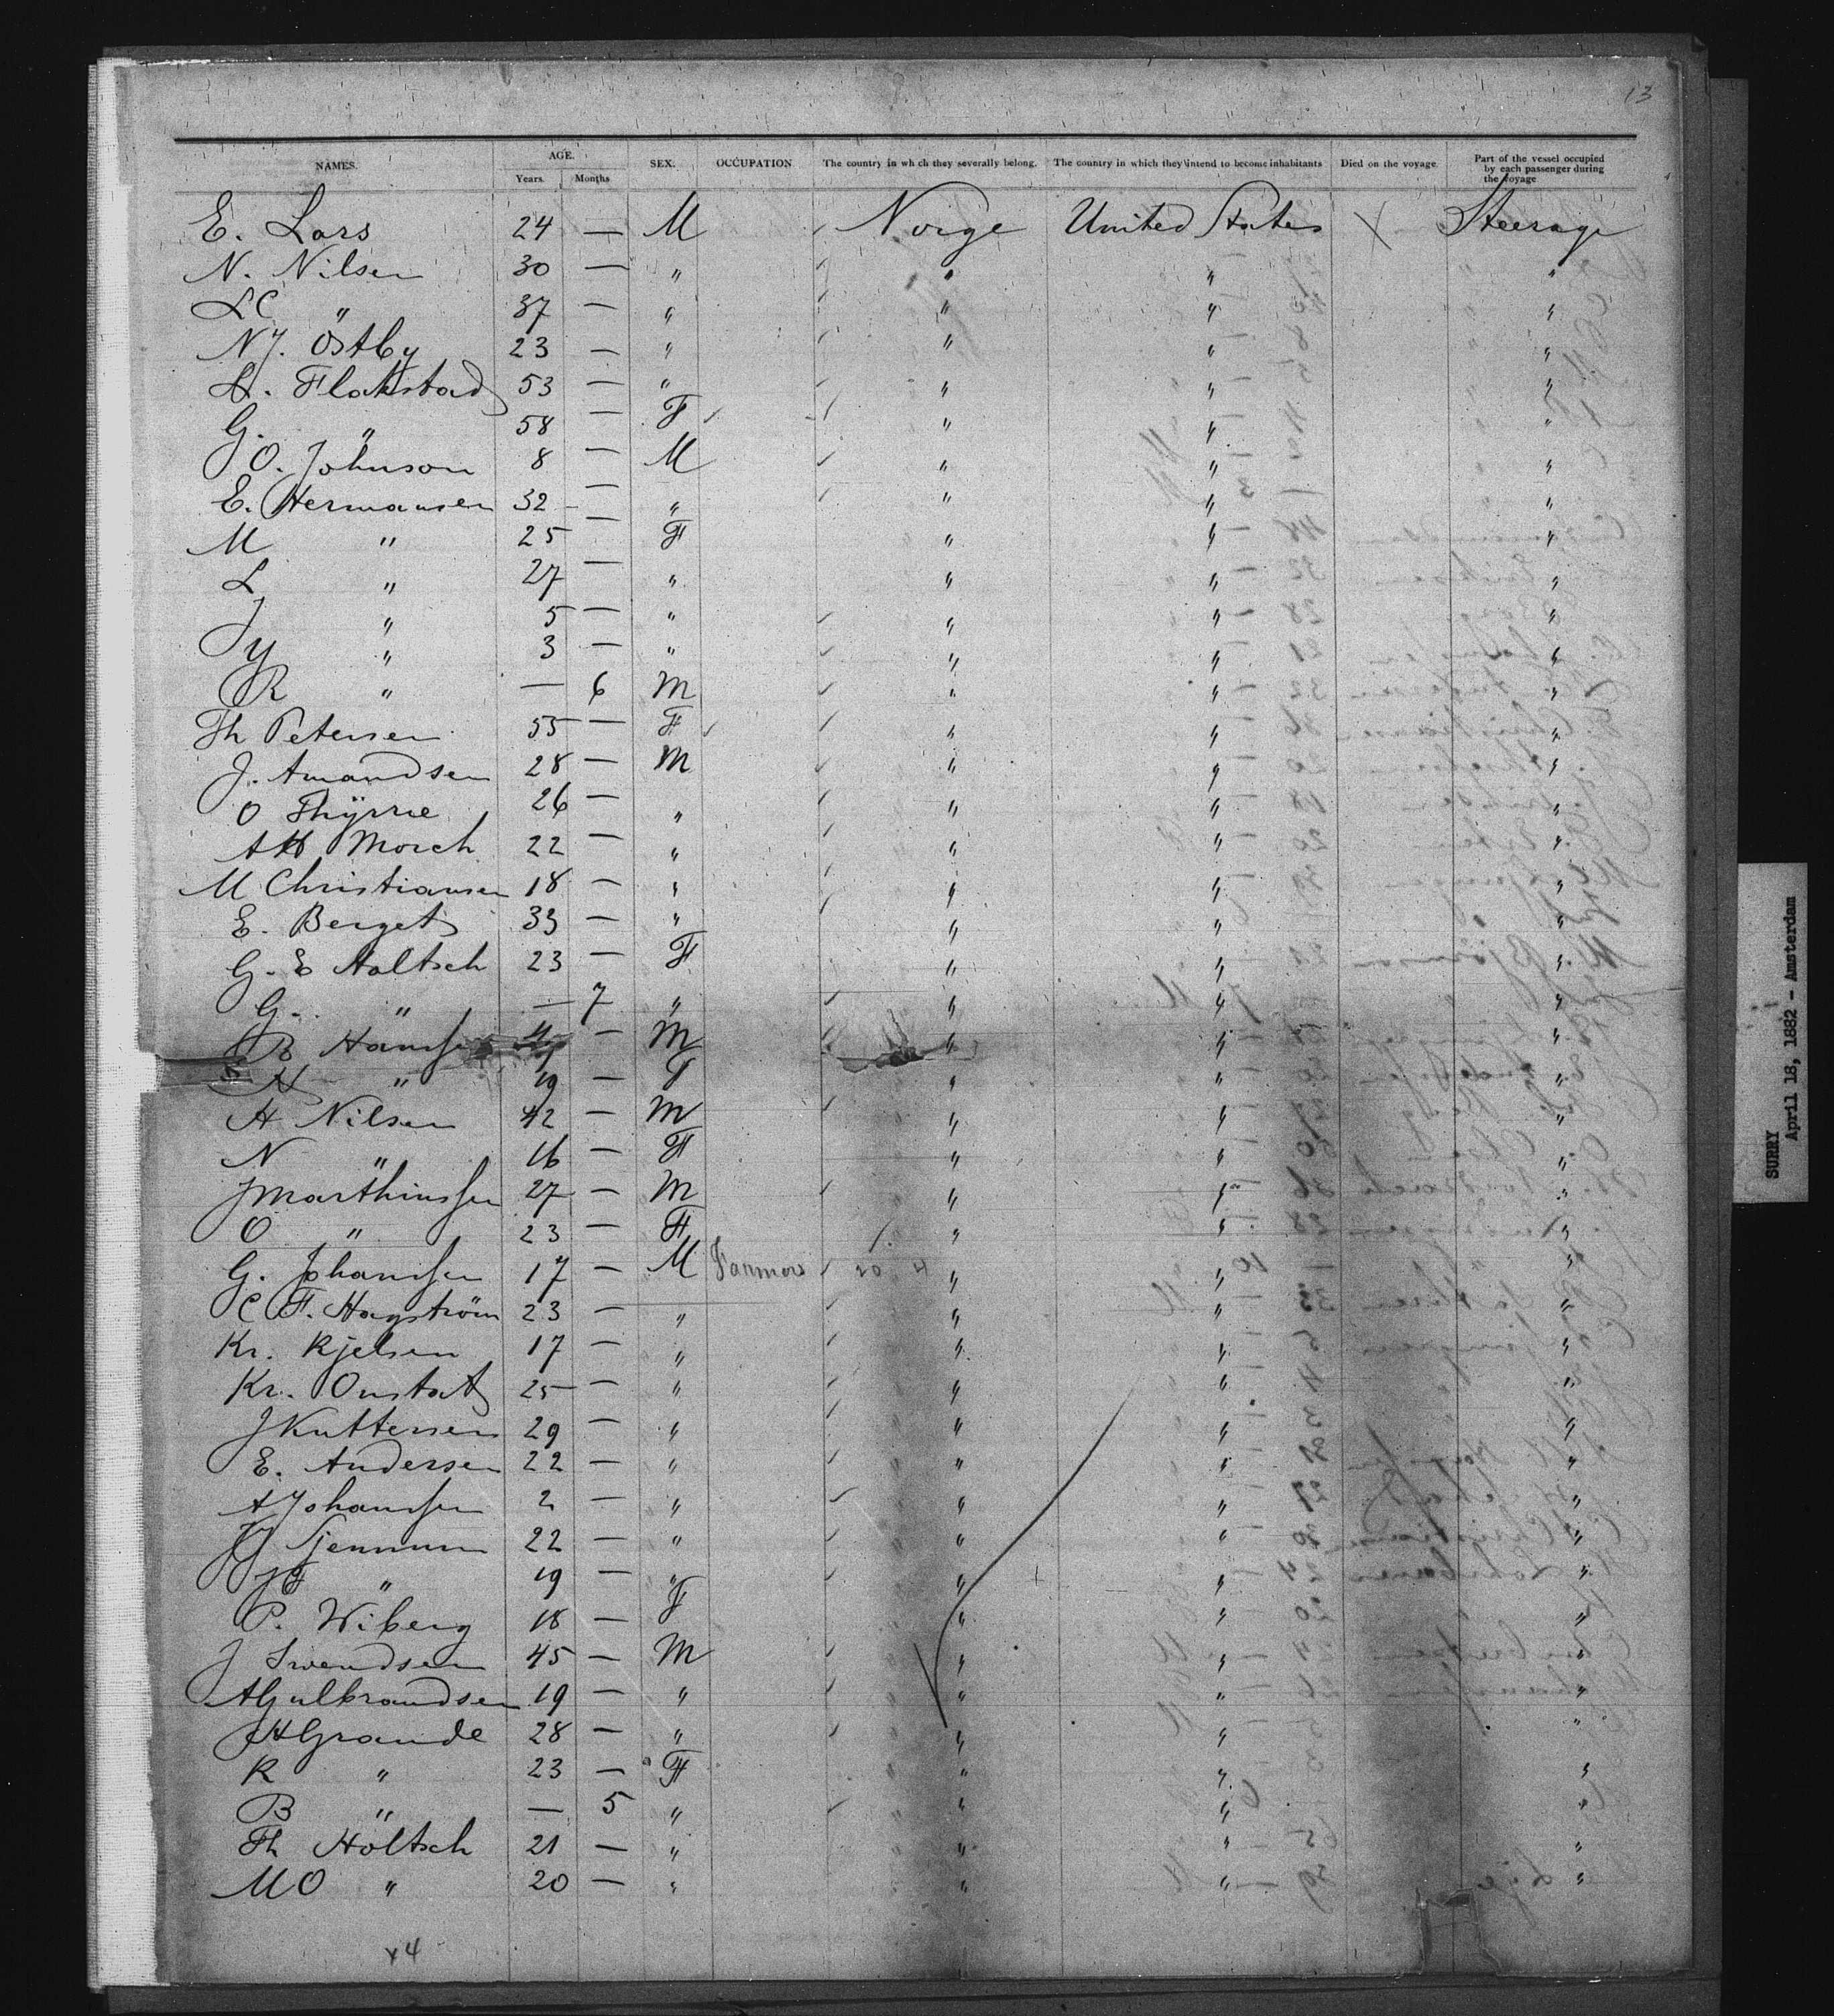 13
NAMES. AGE. Years. Months SEX. OCCUPATION The country in which they severally belong. The country in which they intend to become inhabitants Died on the voyage Part of the vessel occupied by each passenger during the voyage
E. Lars 24 — M Norge United States Steerage
N. Nilsen 30 — " " " "
LC " 37 — " " " "
NJ. Östby 23 — " " " "
L. Flakstad 53 — " " " "
G. " 58 — F " " "
O. Johnson 8 — M " " "
E. Hermansen 32 — " " " "
M " 25 — F " " "
L " 27 — " " " "
J " 5 — " " " "
Y " 3 — " " " "
R " — 6 M " " "
Th Petersen 55 — F " " "
J. Amandsen 28 — M " " "
O Thyrre 26 — " " " "
AH Morch 22 — " " " "
M Christiansen 18 — " " " "
E. Berget 33 — " " " "
G. E Holtsch 23 — F " " "
G. " — 7 " " " "
B Hansse — M " " "
N " 19 — F " " "
H Nilsen 42 — M " " "
N " 16 — F " " "
J Marthinssen 27 — M " " "
O " 23 — F " " "
G. Johanssen 17 — M Farmers 20 4 " " "
C F. Hagström 23 — " " " "
Kr. Kjelsen 17 — " " " "
Kr. Onstad 25 — " " " "
J Kuttersen 29 — " " " "
E. Andersen 22 — " " " "
A Johanssen 2 — " " " "
Tjernmun 22 — " " " "
" 19 — " " " "
P. Wiberg 18 — F " " "
J Swendsen 45 — M " " "
A Gulbrandsen 19 — " " " "
H Grande 28 — " " " "
R " 23 — F " " "
B " — 5 " " " "
Th Höltsch 21 — " " " "
MO " 20 — " " " "
x4
SURRY
April 18, 1882 - Amsterdam